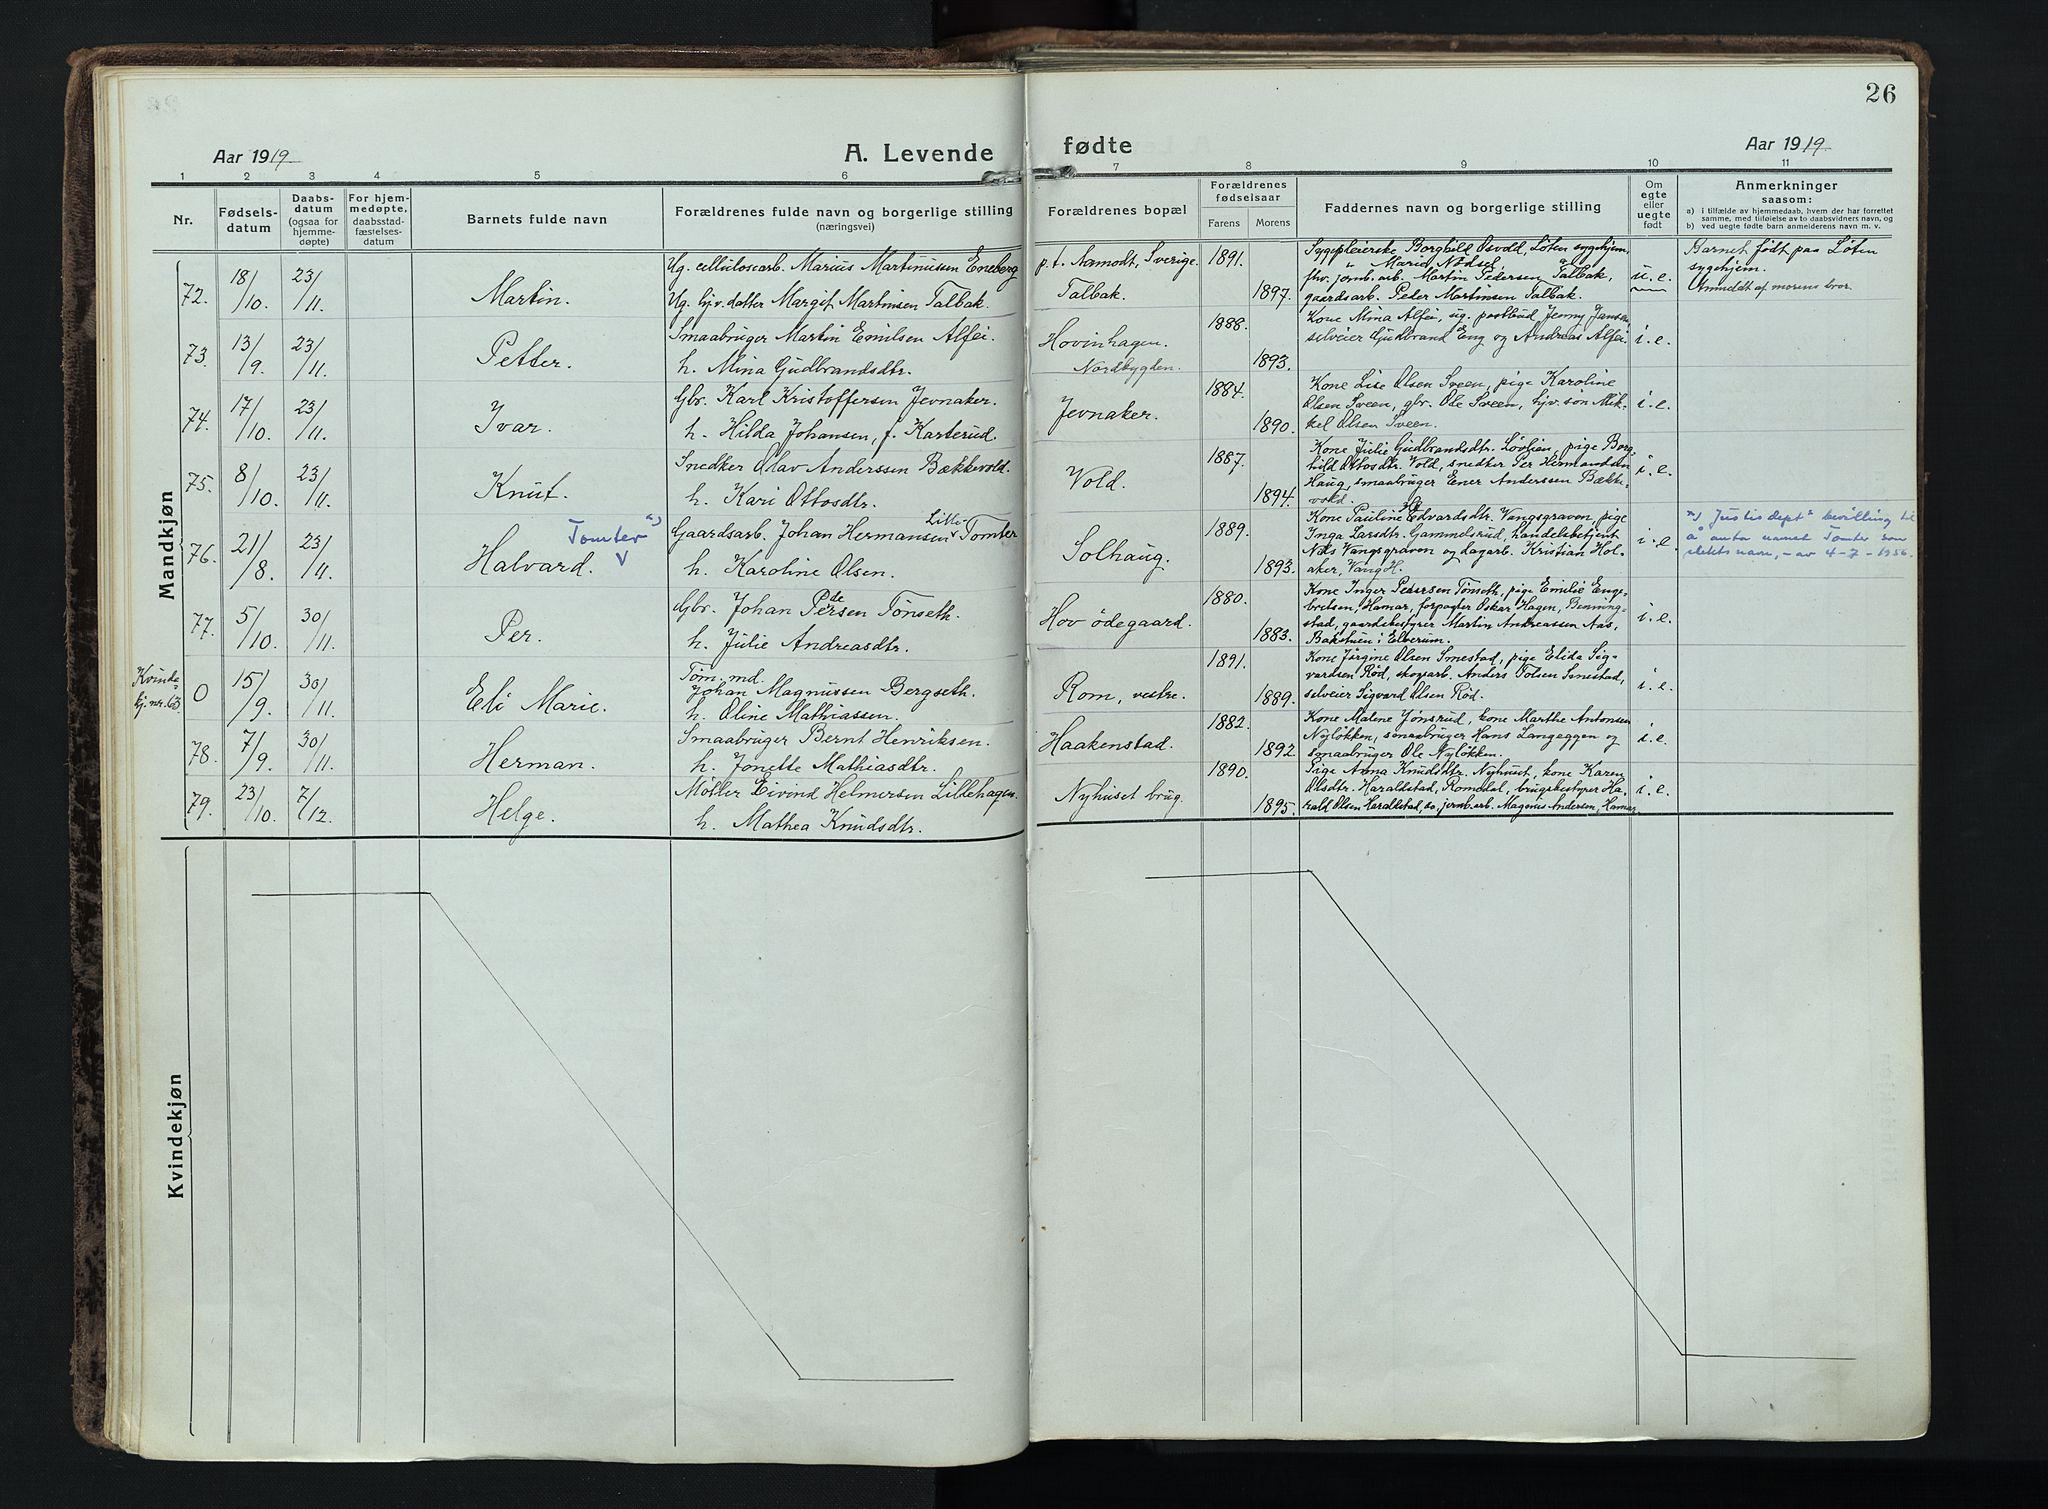 26
Aar 1919
A. Levende
fødte
Aar 1919.
1 2 3 4 5 6 7 8 9 10 11
Nr.
Fødsels-
datum
Daabs-
datum
(ogsaa for
hjemme-
døpte)
For hjem-
medøpte,
daabsstad-
fæstelses-
datum
Barnets fulde navn
Forældrenes fulde navn og borgerlige stilling
(næringsvei)
Forældrenes bopæl
Forældrenes
fødselsaar
Farens Morens
Faddernes navn og borgerlige stilling
Om
egte
eller
uegte
født
Anmerkninger
saasom:
a) i tilfælde av hjemmedaab, hvem der har forrettet
samme, med tilføielse av to daabsvidners navn, og
b) ved uegte født barn anmelderens navn m. v.
Mandkjøn
72. 18/10. 23/11. Martin.
Ug. cellulosearb. Marius Martinusen Eneberg
Ug. hjv. datter Margit Martinsen Talbak.
p.t. Aamodt, Sverige.
Talbak.
1891.
1897.
Sygepleierske Borghild Osvold, Løten sygehjem,
" Maria Nødsel "
fhv. jernb. arb. Martin Pedersen Talbak,
gaardsarb. Peder Martinsen Talbak.
u. e.
Barnet født paa Løten
sygehjem.
Anmeldt af morens bror
73. 13/9. 23/11. Petter.
Smaabruger Martin Emilsen Alfei.
h. Mina Gudbrandsdtr.
Hovinhagen.
Nordbygden.
1888.
1893.
Kone Mina Alfei, ug. postbud Jenny Jansen
selveier Gudbrand Eng og Andreas Alfei.
i. e.
74. 17/10. 23/11. Ivar.
Gbr. Karl Kristoffersen Jevnaker.
h. Hilda Johansen, f. Karterud.
Jevnaker.
1884.
1890.
Kone Lise Olsen Sveen, pige Karoline
Olsen Sveen, gbr. Ole Sveen, hjv. søn Mik-
kel Olsen Sveen.
i. e.
75. 8/10. 23/11. Knut.
Snedker Olav Anderssen Bækkevold.
h. Kari Ottosdtr.
Vold.
1887.
1894.
Kone Julie Gudbrandsdtr. Løvlien, pige Borg-
hild Ottosdtr. Vold, snedker Per Hermandsen
Haug, smaabruger Ener Anderssen Bække-
vold.
i. e.
76. 21/8. 23/11. Halvard. Tomter
Gaardsarb. Johan Hermansen Lille-Tomter
h. Karoline Olsen.
Solhaug.
1889.
1893.
Kone Pauline Edvardsdtr. Vangsgraven, pige
Inga Larsdtr. Gammelsrud, handelsbetjent
Nils Vangsgraven og dagarb. Kristian Hol-
aker, Vang H.
i. e.
Justisdept.s bevilling til
å anta navnet Tomter som
slektsnavn, - av 4-7-1956.
77. 5/10. 30/11. Per.
Gbr. Johan Pedersen Tønseth.
h. Julie Andreasdtr.
Hov ødegaard.
1880.
1883.
Kone Inger Pedersen Tønseth, pige Emilie Enge-
bretsen, Hamar, forpagter Oskar Hagen, Benning-
stad, gaardsbestyrer Martin Andreassen Aas,
Bakstuen i Elverum.
i. e.
Kvinde-
kj. nr. 63.
0 15/9. 30/11. Eli Marie.
Tøm. md.
Johan Magnussen Bergseth.
h. Oline Mathiassen.
Rom, vestre.
1891.
1889.
Kone Jørgine Olsen Smestad, pige Elida Sig-
vardsen Rød, skogarb. Anders Tolsen Smestad,
selveier Sigvard Olsen Rød.
i. e.
78. 7/9. 30/11. Herman.
Smaabruger Bernt Henriksen.
h. Jonette Mathiasdtr.
Haakenstad.
1882.
1892.
Kone Malene Jønsrud, kone Marthe Antonsen
Nyløkken, smaabruger Hans Langeggen og
smaabruger Ole Nyløkken.
i. e.
79. 23/10. 7/12. Helge.
Møller Eivind Helmersen Lillehagen.
h. Mathea Knudsdtr.
Nyhuset brug.
1890.
1895.
Pige Anna Knudsdtr. Nyhuset, kone Karen
Olsdtr. Haraldstad, Romedal, brugsbestyrer Ha-
rald Olsen Haraldstad, do, jernb. arb. Magnus Andersen, Hamar.
i. e.
Kvindekjøn